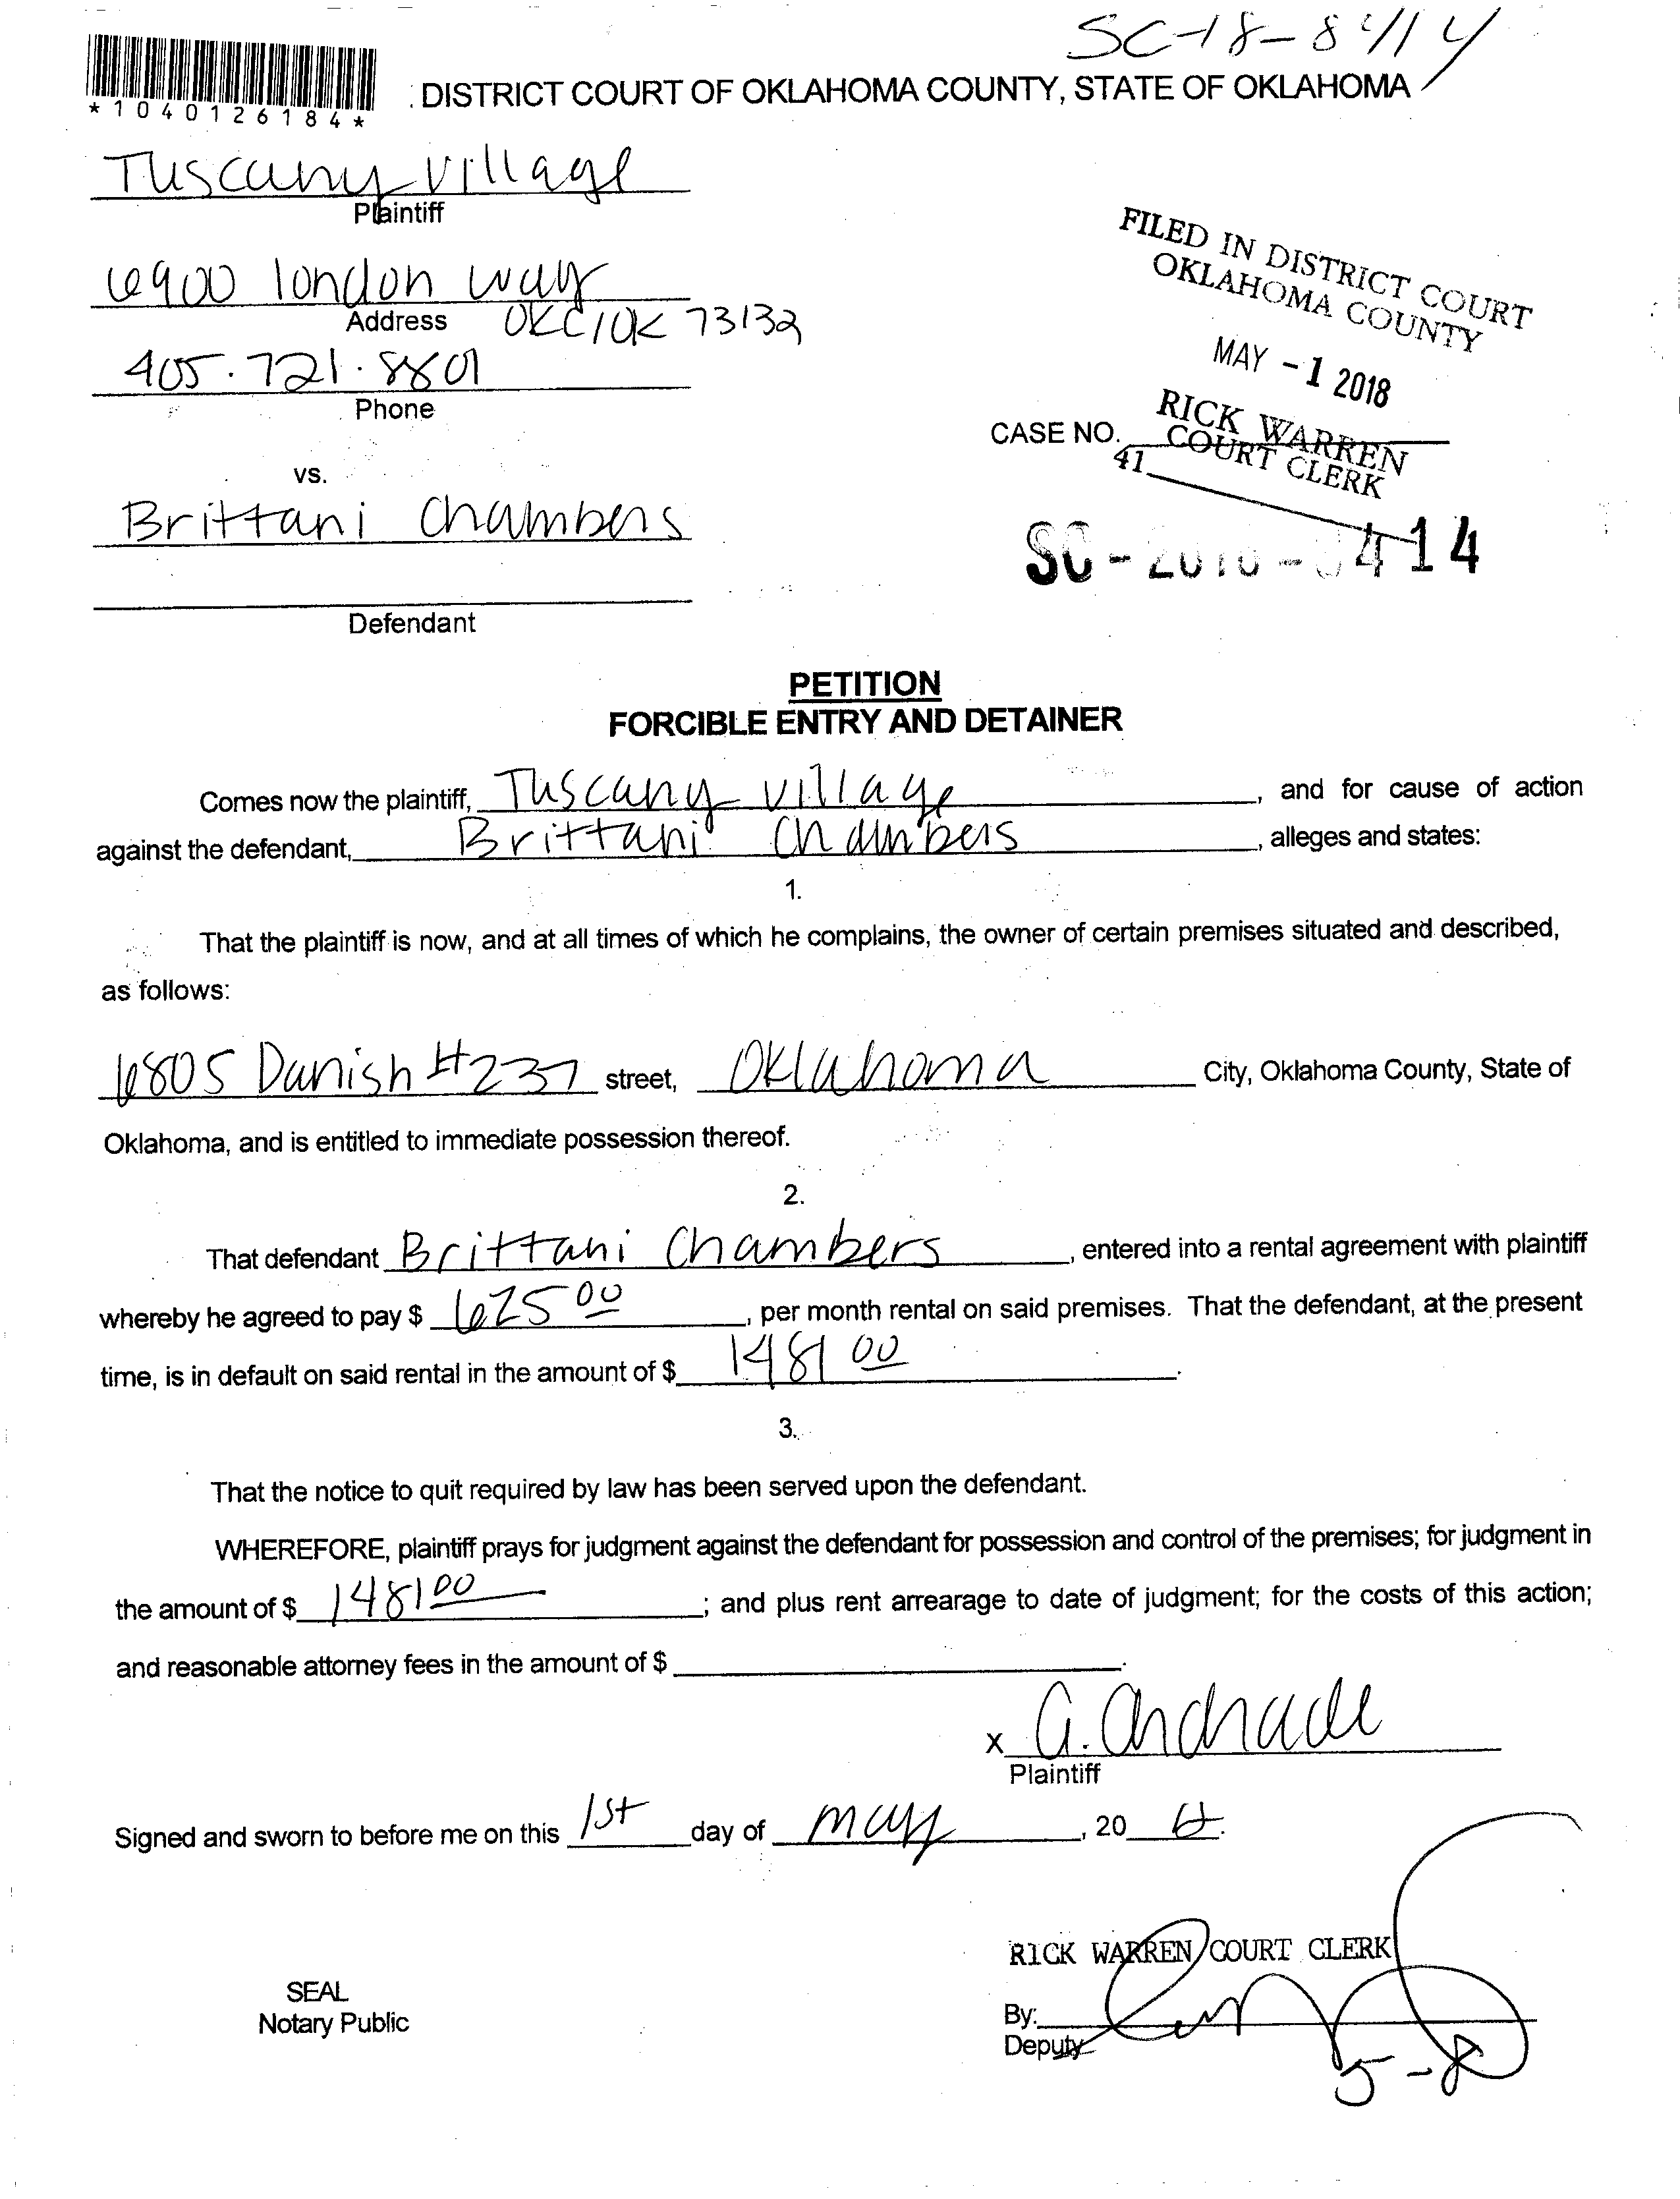 SC-18-8414
*1040126184*
DISTRICT COURT OF OKLAHOMA COUNTY, STATE OF OKLAHOMA
Tuscany Village
Plaintiff
6900 london way
Address OKC/OK 73132
405.721.8801
Phone
FILED IN DISTRICT COURT
OKLAHOMA COUNTY
MAY -1 2018
RICK WARREN
COURT CLERK
CASE NO.
41
vs.
Brittani Chambers
SC - 2018 - 8414
Defendant
PETITION
FORCIBLE ENTRY AND DETAINER
Comes now the plaintiff, Tuscany Village, and for cause of action
against the defendant, Brittani Chambers, alleges and states:
1.
That the plaintiff is now, and at all times of which he complains, the owner of certain premises situated and described,
as follows:
6805 Danish #237 street, Oklahoma City, Oklahoma County, State of
Oklahoma, and is entitled to immediate possession thereof.
2.
That defendant Brittani Chambers, entered into a rental agreement with plaintiff
whereby he agreed to pay $ 625 00, per month rental on said premises. That the defendant, at the present
time, is in default on said rental in the amount of $ 1481 00.
3.
That the notice to quit required by law has been served upon the defendant.
WHEREFORE, plaintiff prays for judgment against the defendant for possession and control of the premises; for judgment in
the amount of $ 1481 00; and plus rent arrearage to date of judgment; for the costs of this action;
and reasonable attorney fees in the amount of $
x G. Andrade
Plaintiff
Signed and sworn to before me on this 1st day of may, 20
RICK WARREN COURT CLERK
SEAL
Notary Public
By:
Deputy
5-8